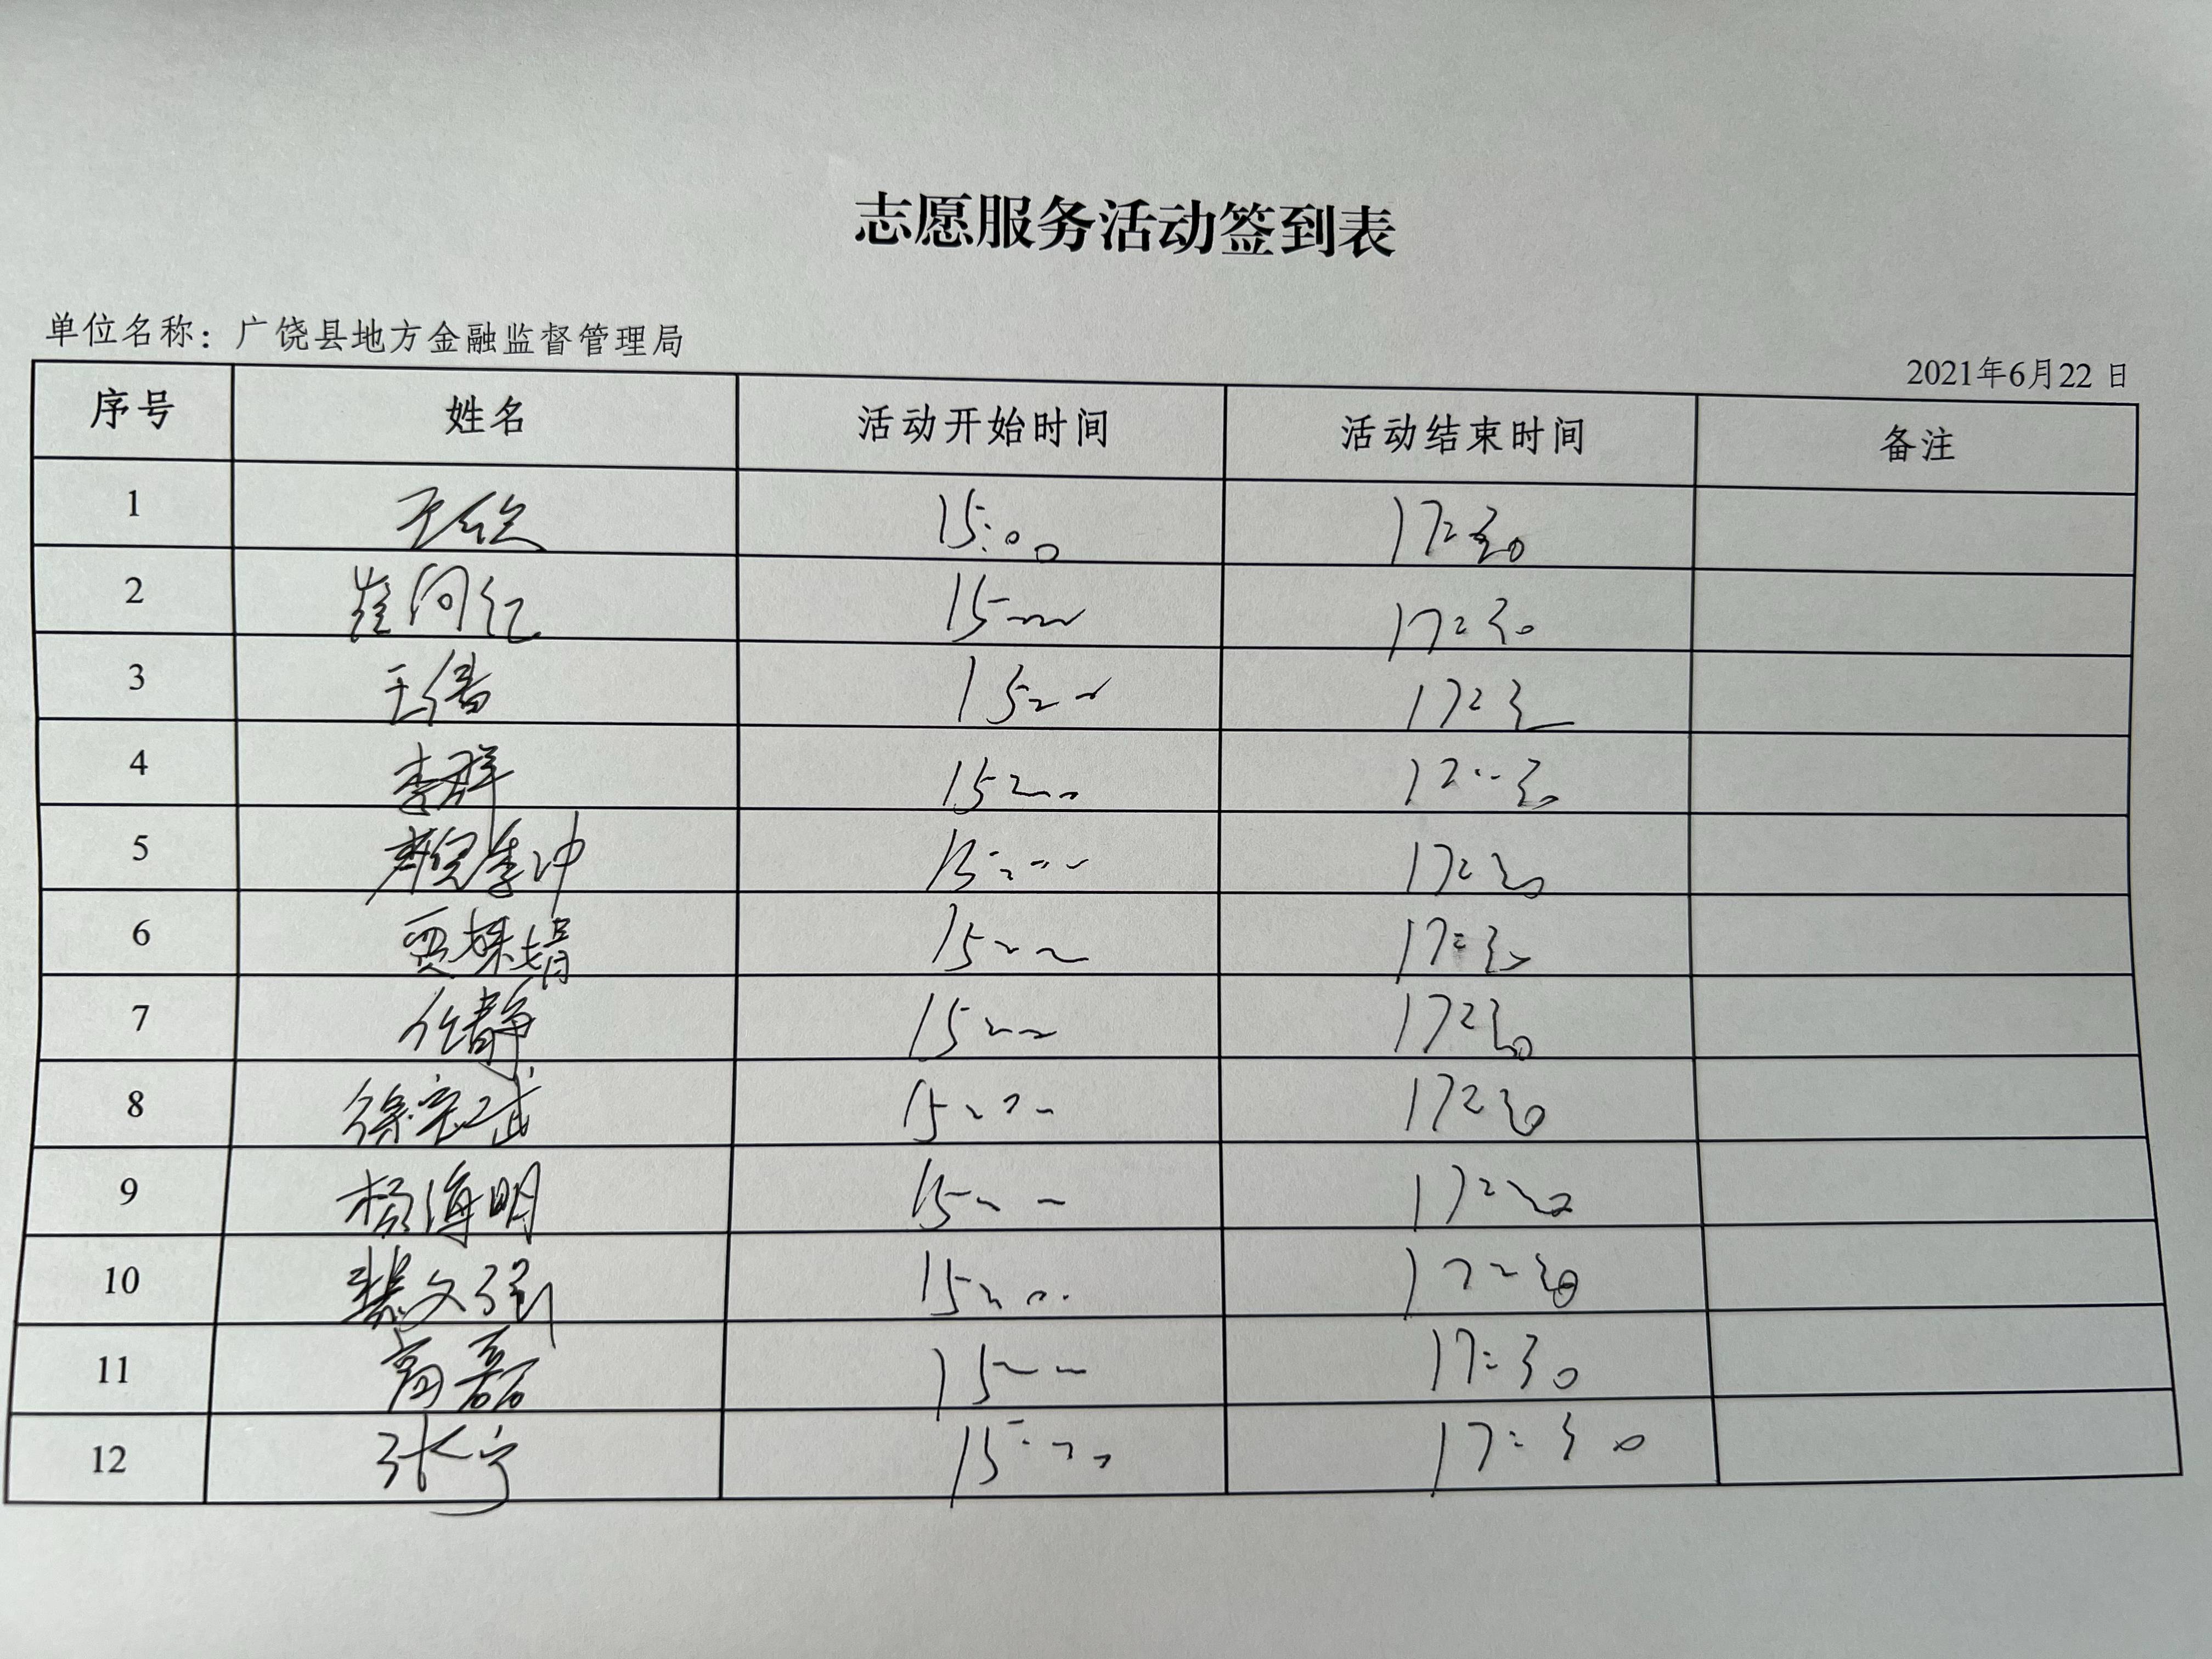 志愿服务活动签到表
单位名称：广饶县地方金融监督管理局
2021年6月22 日
序号 姓名 活动开始时间 活动结束时间 备注
1 15:00 17:30
2 崔向红 15:00 17:30
3 王倩 15:00 17:30
4 李群 15:00 17:30
5 15:00 17:30
6 贾娟 15:00 17:30
7 任静 15:00 17:30
8 徐宝武 15:00 17:30
9 杨海明 15:00 17:30
10 裴文强 15:00 17:30
11 高磊 15:00 17:30
12 张宁 15:00 17:30